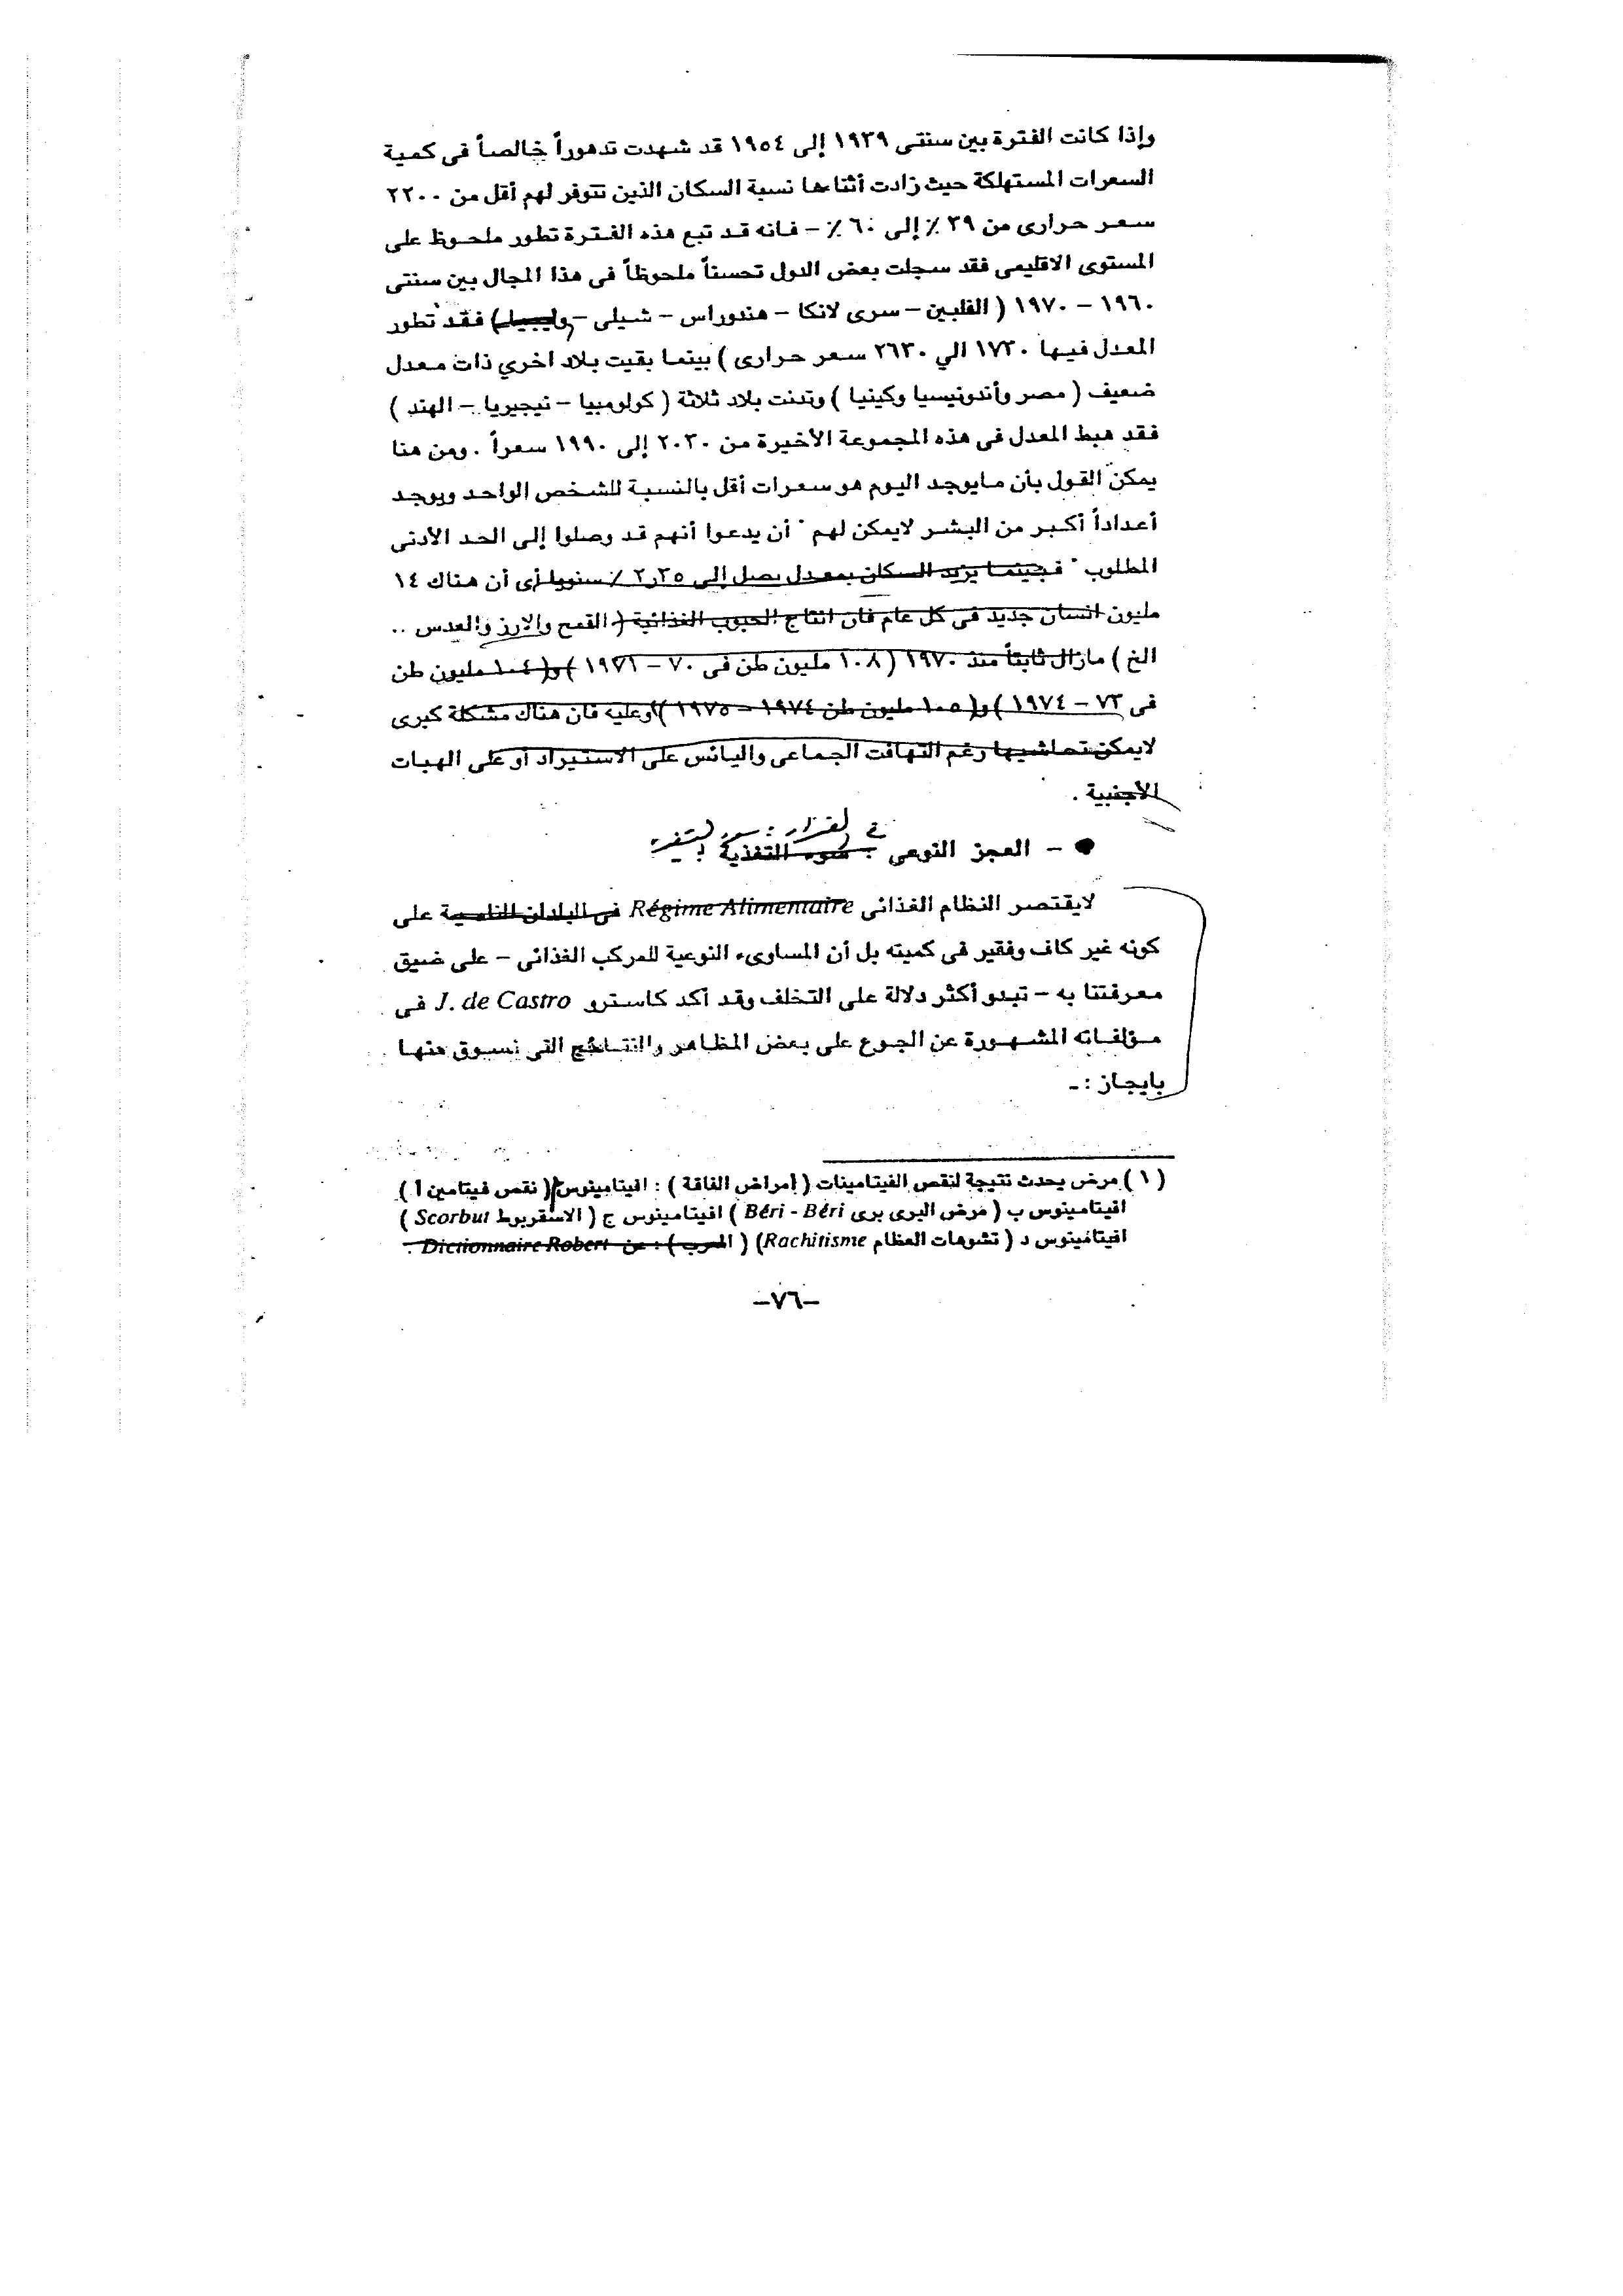 وإذا كانت الفترة بين سنتى ١٩٣٩ إلى ١٩٥٤ قد شهدت تدهوراً خالصاً فى كمية
السعرات المستهلكة حيث زادت أثناءها نسبة السكان الذين تتوفر لهم أقل من ٢٢٠٠
سعر حرارى من ٣٩ ٪ إلى ٦٠ ٪ – فانه قد تبع هذه الفترة تطور ملحوظ على
المستوى الاقليمى فقد سجلت بعض الدول تحسناً ملحوظاً فى هذا المجال بين سنتى
١٩٦٠ – ١٩٧٠ ( الفلبين – سرى لانكا – هندوراس – شيلى – وليبيا ) فقد تطور
المعدل فيها ١٧٣٠ الي ٢٦٣٠ سعر حرارى ) بينما بقيت بلاد اخري ذات معدل
ضعيف ( مصر وأندونيسيا وكينيا ) وتدنت بلاد ثلاثة ( كولومبيا – نيجيريا – الهند )
فقد هبط المعدل فى هذه المجموعة الأخيرة من ٢٠٣٠ إلى ١٩٩٠ سعراً . ومن هنا
يمكن القول بأن مايوجد اليوم هو سعرات أقل بالنسبة للشخص الواحد ويوجد
أعداداً أكبر من البشر لايمكن لهم " أن يدعوا أنهم قد وصلوا إلى الحد الأدنى
المطلوب " فحينما يزيد السكان بمعدل يصل إلى ٢٫٣٥ ٪ سنويا أى أن هناك ١٤
مليون انسان جديد فى كل عام فان انتاج الحبوب الغذائية ( القمح والارز والعدس ..
الخ ) مازال ثابتاً منذ ١٩٧٠ ( ١٠٨ مليون طن فى ٧٠ – ١٩٧١ ) و( ١٠٤ مليون طن
فى ٧٣ – ١٩٧٤ ) و( ١٠٥ مليون طن ١٩٧٤ – ١٩٧٥ ) وعليه فان هناك مشكلة كبرى
لايمكن تحاشيها رغم التهافت الجماعى واليائس على الاستيراد أو على الهبات
الأجنبية .
● – العجز النوعى : سوء التغذية :
لايقتصر النظام الغذائى Régime Alimentaire فى البلدان النامية على
كونه غير كاف وفقير فى كميته بل أن المساوىء النوعية للمركب الغذائى – على ضيق
معرفتنا به – تبدو أكثر دلالة على التخلف وقد أكد كاسترو J. de Castro فى
مؤلفاته المشهورة عن الجوع على بعض المظاهر والنتائج التى نسوق منها
بايجاز : ـ
( ١ ) مرض يحدث نتيجة لنقص الفيتامينات ( أمراض الفاقة ) : افيتامينوس أ ( نقص فيتامين أ )
افيتامينوس ب ( مرض البرى برى Béri - Béri ) افيتامينوس ج ( الاسقربوط Scorbut )
افيتامينوس د ( تشوهات العظام Rachitisme) ( المعرب ) : عن Dictionnaire Robert .
–٧٦–